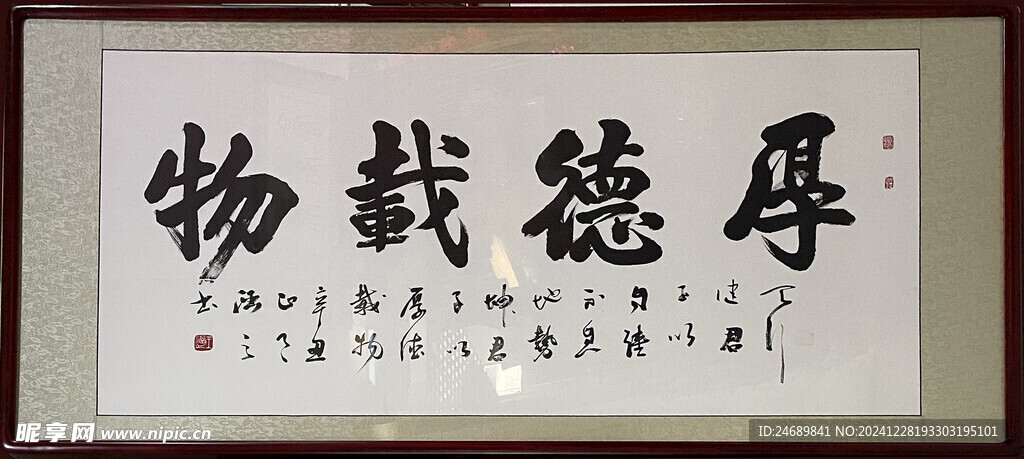 厚德載物
天行
健君
子以
自强
不息
地勢
坤君
子以
厚德
載物
辛丑
正月
書
昵享网 www.nipic.cn
ID:24689841 NO:20241228193303195101